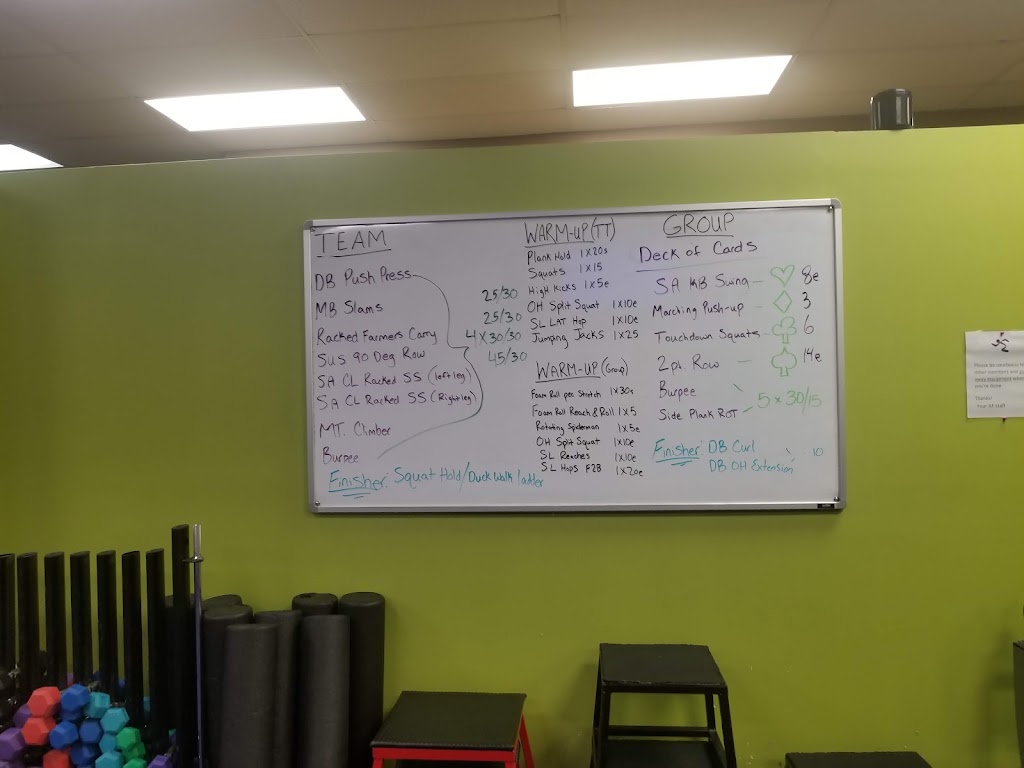 TEAM
DB Push Press
MB Slams
Racked Farmers Carry
SUS 90 Deg Row
SA CL Racked SS (left leg)
SA CL Racked SS (Right leg)
MT. Climber
Burpee
25/30
25/30
4 x 30/30
45/30
Finisher: Squat Hold/Duck walk ladder
WARM-UP (TT)
Plank Hold 1x20s
Squats 1x15
High Kicks 1x5e
OH Split Squat 1x10e
SL LAT Hop 1x10e
Jumping Jacks 1x25
WARM-UP (Group)
Foam Roll pec Stretch 1x30s
Foam Roll Reach & Roll 1x5
Rotating Spiderman 1x5e
OH Split Squat 1x10e
SL Reaches 1x10e
SL Hops F2B 1x20e
GROUP
Deck of Cards
SA KB Swing – ♡ 8e
Marching Push-up – ♢ 3
Touchdown Squats – ♧ 6
2pt. Row – ♤ 14e
Burpee
Side Plank ROT
5 x 30/15
Finisher: DB Curl
DB OH Extension
10
Thanks!